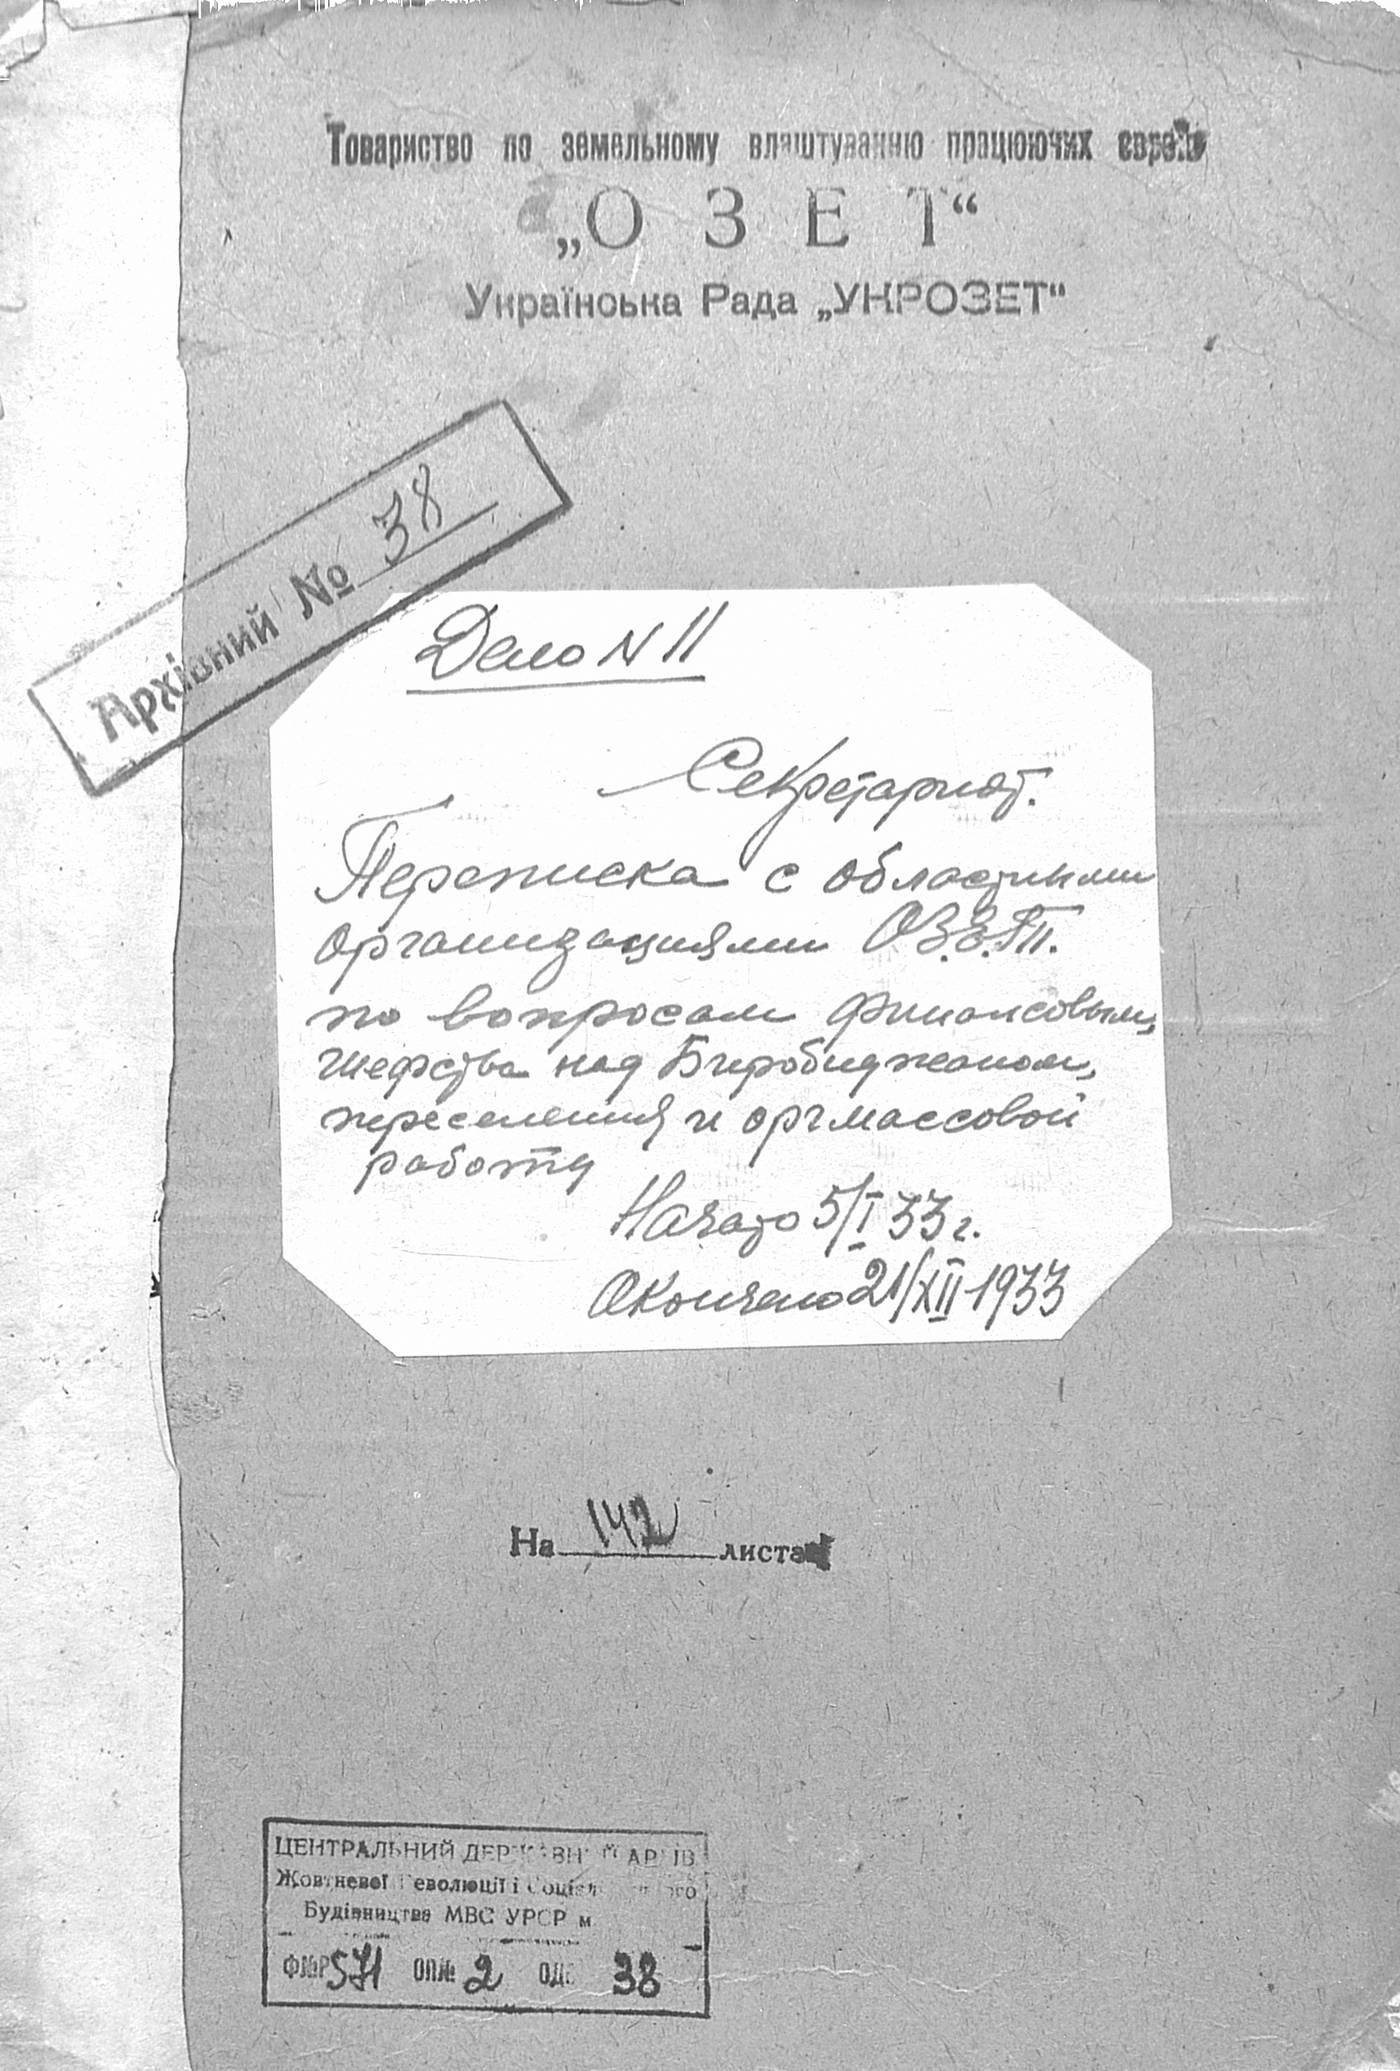 Товариство по земельному влаштуванню працюючих
„ОЗЕТ“
Українська Рада „УКРОЗЕТ“
Архівний № 38
Дело N 11
Секретариат.
Переписка с областными
организациями О.З.Е.Т.
по вопросам финансовым,
шефства над Биробиджаном,
переселения и оргмассовой
работы
Начато 5/I 33 г.
Окончено 21/XII-1933
На 142 листах
ЦЕНТРАЛЬНИЙ ДЕРЖАВНИЙ АРХІВ
Жовтневої Революції і Соціалістичного
Будівництва МВС УРСР м
Ф№Р571 ОП№ 2 ОД 38